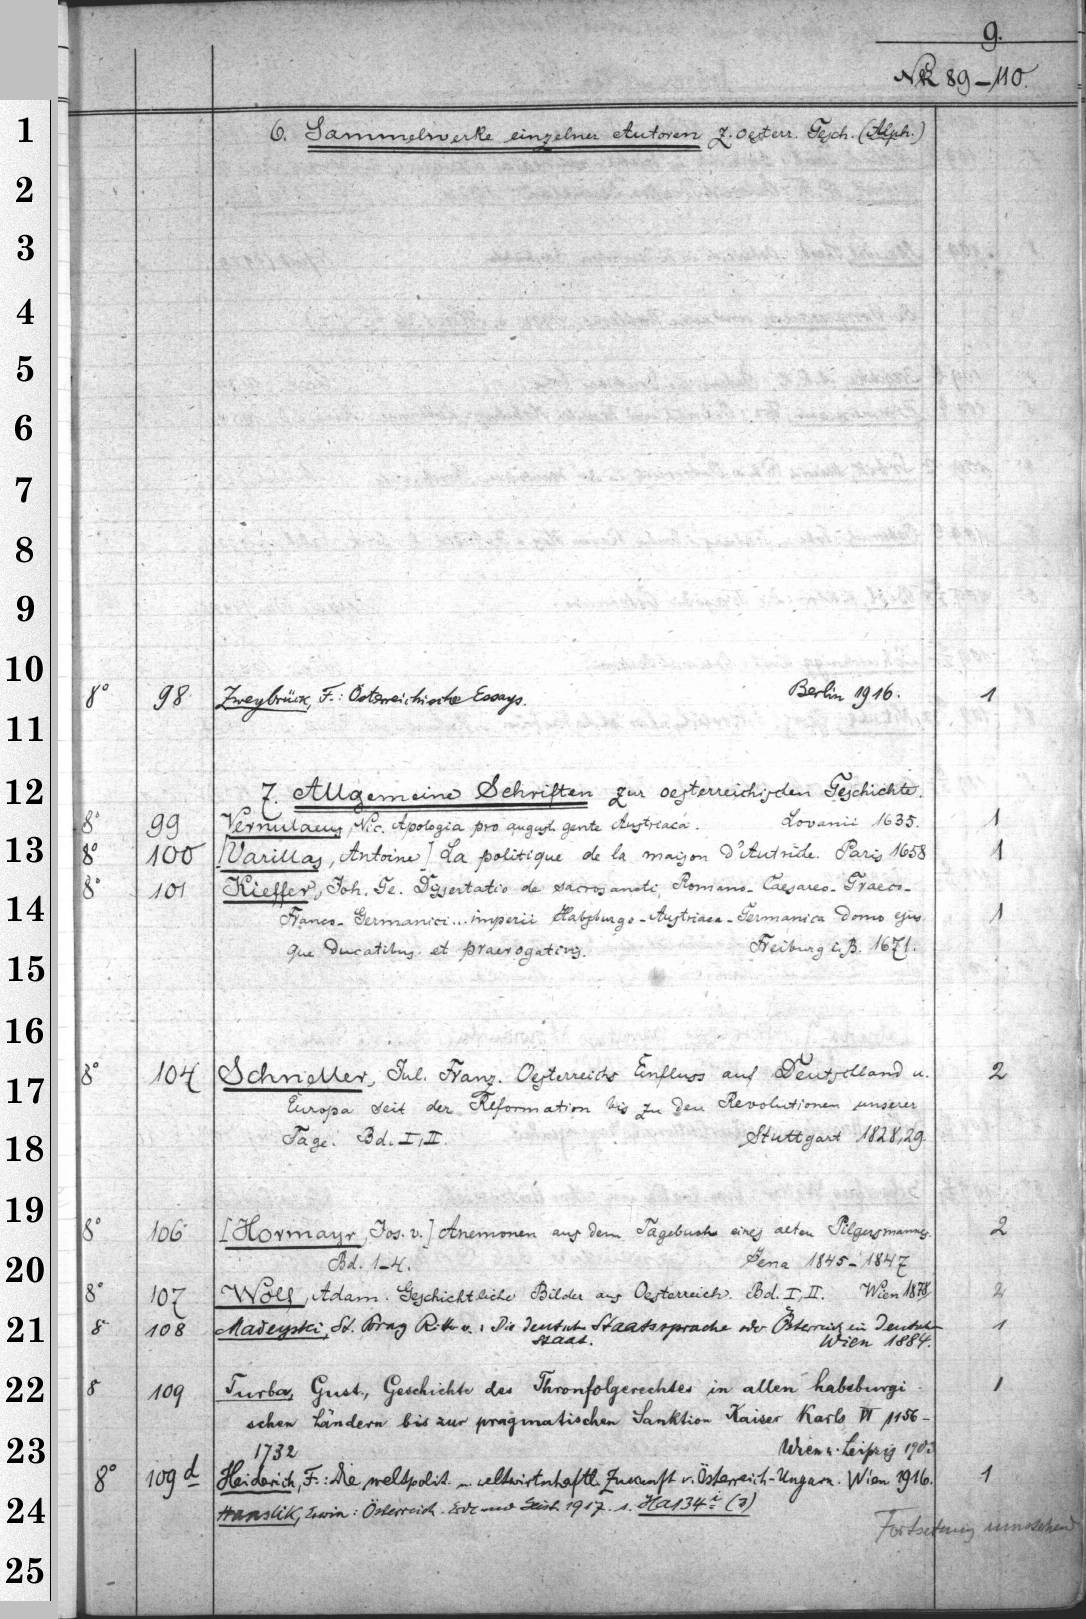 9.
NR 89-110.
1
6. Sammelwerke einzelner Autoren z. oesterr. Gesch. (Alph.)
2
3
4
5
6
7
8
9
10
8° 98 Zweybrück, F.: Österreichische Essays. Berlin 1916. 1
11
12
7. Allgemeine Schriften zur oesterreichischen Geschichte.
8° 99 Vernulaeus, Nic. Apologia pro august. gente Austriaca. Lovanii 1635. 1
13
8° 100 [Varillas, Antoine] La politique de la maison d'Autriche. Paris 1658 1
8° 101 Kieffer, Joh. Ge. Dissertatio de sacrosancti Romano-Caesareo-Graeco-
14
Franco-Germanici... imperii Habsburgo-Austriaca-Germanica domo ejus 1
que ducatibus et praerogativis. Freiburg i. B. 1671.
15
16
8° 104 Schneller, Jul. Franz. Oesterreichs Einfluss auf Deutschland u. 2
17
Europa seit der Reformation bis zu den Revolutionen unserer
18
Tage. Bd. I, II. Stuttgart 1828,29.
19
8° 106 [Hormayr, Jos. v.] Anemonen aus dem Tagebuche eines alten Pilgersmannes. 2
20
Bd. 1-4. Jena 1845-1847
8° 107 Wolf, Adam. Geschichtliche Bilder aus Oesterreich. Bd. I, II. Wien 1878 2
21
8 108 Madeyski, St. Ritter v.: Die deutsche Staatssprache oder Österreich ein deutscher 1
Staat. Wien 1884.
22
8 109 Turba, Gust., Geschichte des Thronfolgerechtes in allen habsburgi- 1
schen Ländern bis zur pragmatischen Sanktion Kaiser Karls VI 1156-
23
1732 Wien u. Leipzig
8° 109 d Heiderich, F.: Die weltpolit. u. weltwirtschaftl. Zukunft v. Österreich-Ungarn. Wien 1916. 1
24
Hanslik, Erwin: Österreich. Erde und Geist. 1917. s. HA134
Fortsetzung umstehend
25